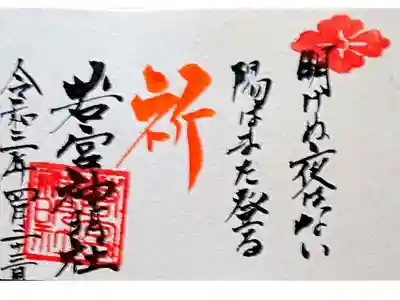 明けぬ夜はない
陽はまた登る
祈
若宮神明社
令和二年四月二十三日